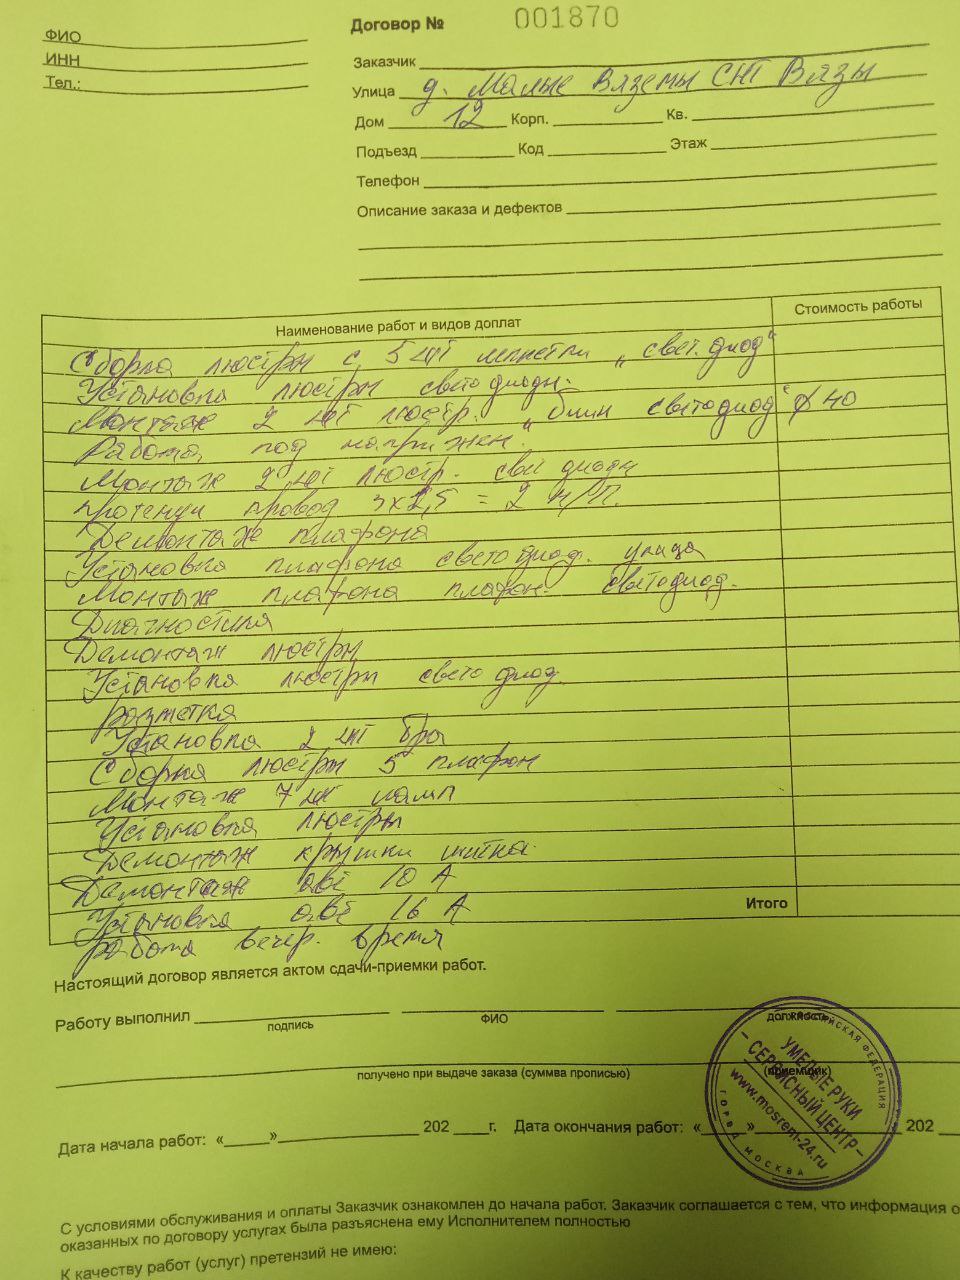 ФИО
ИНН
Тел.:
Договор № 001870
Заказчик
Улица д. Малые Вяземы СНТ Вязы
Дом 12 Корп. Кв.
Подъезд Код Этаж
Телефон
Описание заказа и дефектов
Наименование работ и видов доплат
Стоимость работы
Сборка люстры с 5 шт „свет. диод“
Установка люстры светодиодн.
Монтаж 2 шт люстр. „блин светодиод“ ф 40
Работа под напряжен.
Монтаж 2 шт люстр. свет диодн
провод = 2 м/п.
Демонтаж плафона
Установка плафона светодиод. улица
Монтаж плафона плафон. светодиод.
Диагностика
Демонтаж люстры
Установка люстры свето диод.
разметка
Установка 2 шт бра
Сборка люстры 5 плафон
Монтаж 7 шт ламп
Установка люстры
Демонтаж крышки щитка
Демонтаж авт 10 А
Установка авт 16 А
Итого
работа вечер. время
Настоящий договор является актом сдачи-приемки работ.
Работу выполнил
подпись
ФИО
должность
получено при выдаче заказа (суммва прописью)
(приемщик)
РОССИЙСКАЯ ФЕДЕРАЦИЯ
УМЕЛЫЕ РУКИ
СЕРВИСНЫЙ ЦЕНТР
www.mosrem-24.ru
ГОРОД МОСКВА
Дата начала работ: « » 202 г. Дата окончания работ: « » 202
С условиями обслуживания и оплаты Заказчик ознакомлен до начала работ. Заказчик соглашается с тем, что информация о
оказанных по договору услугах была разъяснена ему Исполнителем полностью
К качеству работ (услуг) претензий не имею: